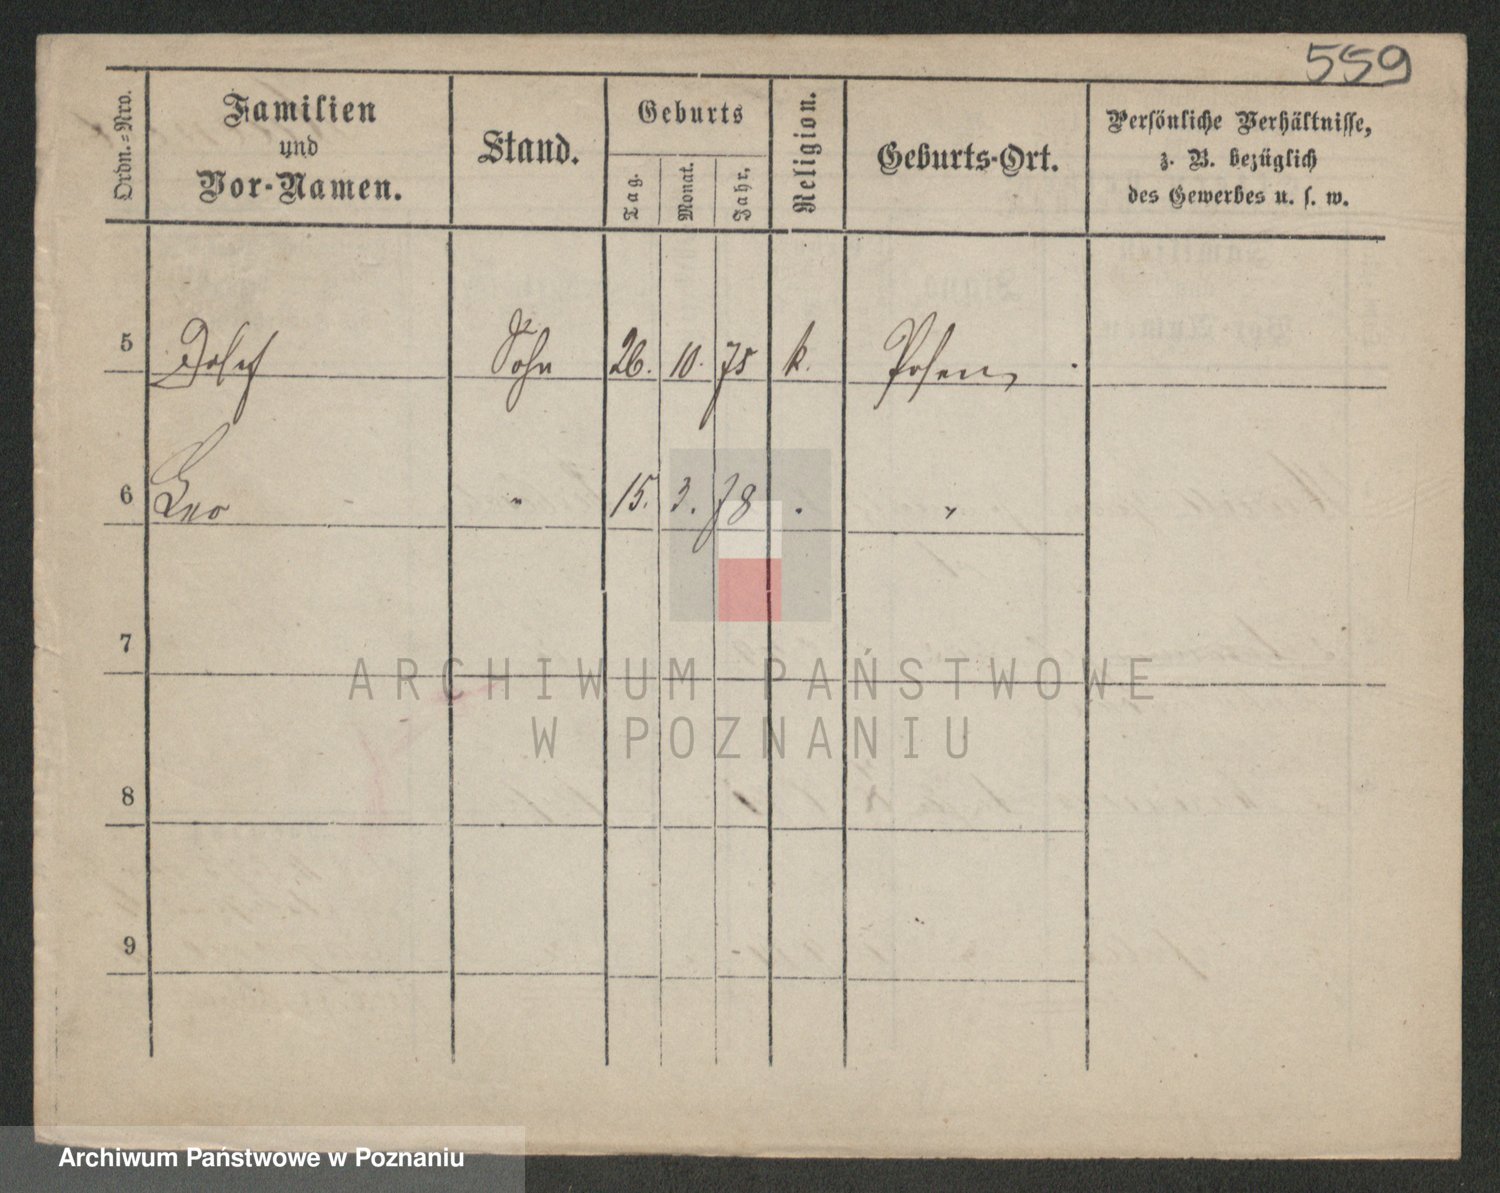 559
Ordn.-Nro.
Familien
und
Vor-Namen.
Stand.
Geburts
Tag.
Monat.
Jahr.
Religion.
Geburts-Ort.
Persönliche Verhältnisse,
z. B. bezüglich
des Gewerbes u. s. w.
5 Josef Sohn 26. 10. 75 k. Posen
6 Leo " 15. 3. 78 . "
7
8
9
ARCHIWUM PAŃSTWOWE
W POZNANIU
Archiwum Państwowe w Poznaniu